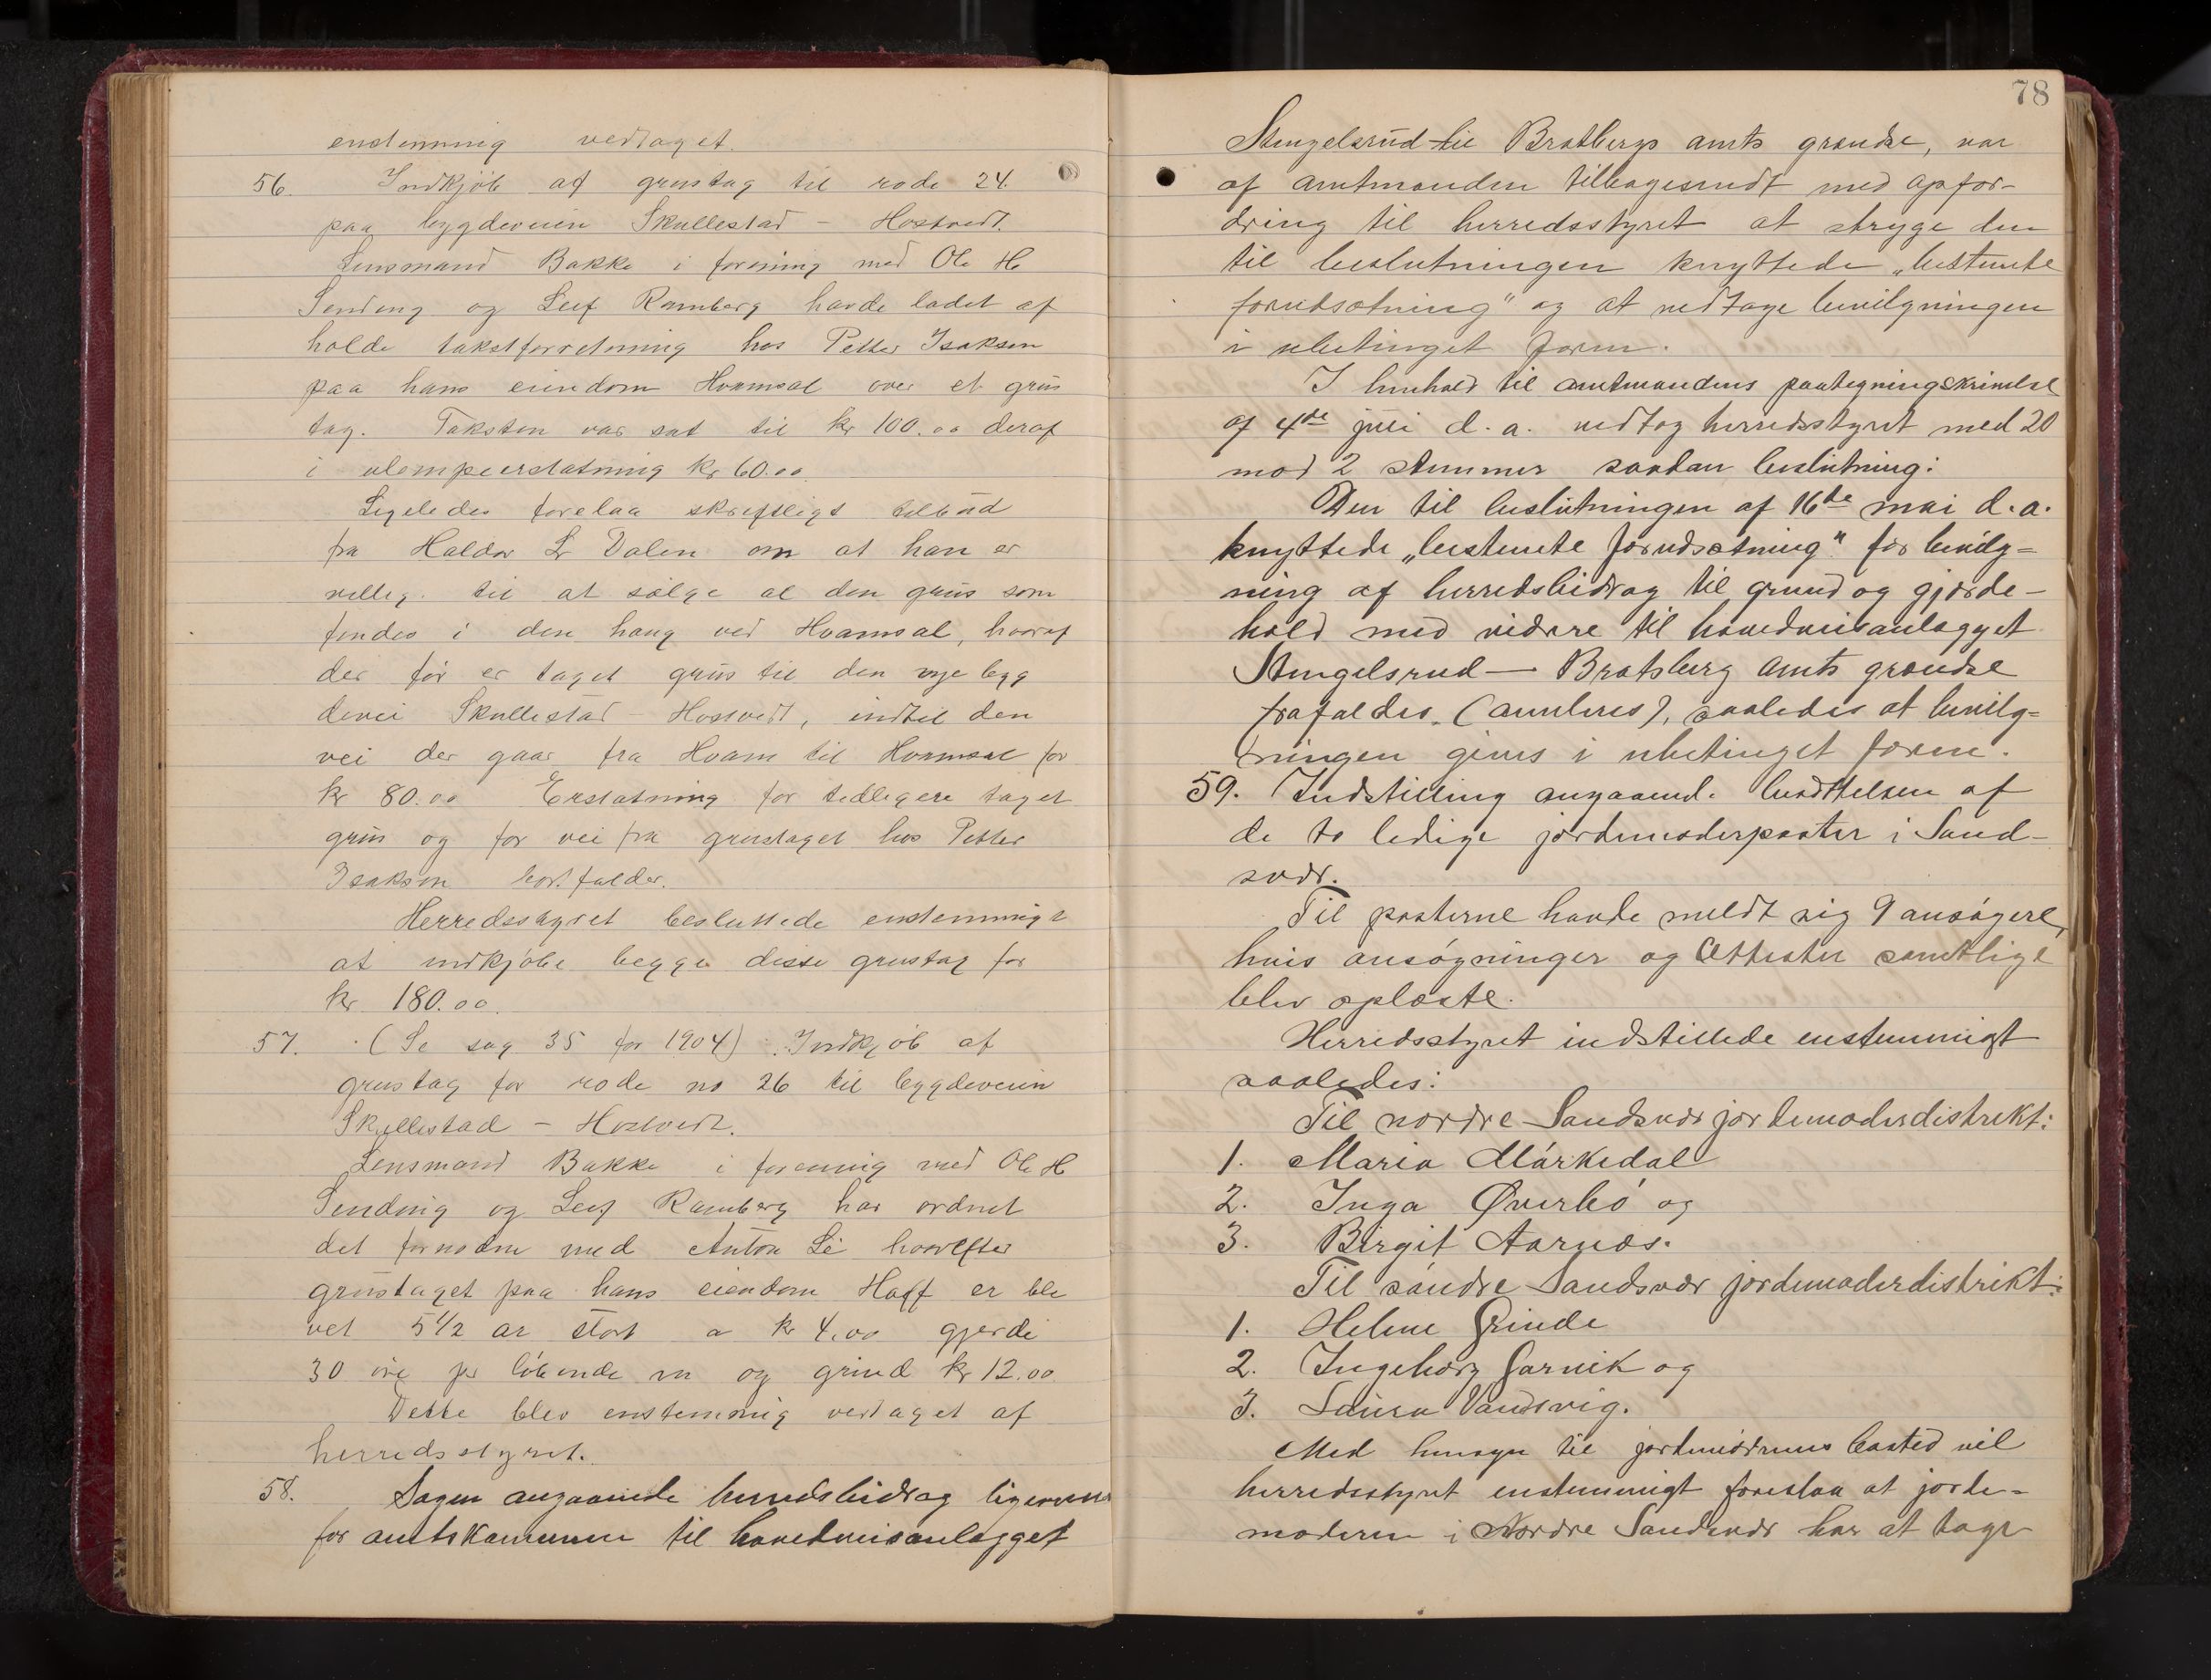 enstemmig vedtaget.
56. Indkjøb af grustag til rode 24.
paa bygdeveien Skullestad - Hostvedt.
Lensmand Bakke i forening med Ole H
Sending og Leif Ramberg havde ladet af
holde takstforretning hos Petter Isaksen
paa hans eiendom Hvamsal over et grus
tag. Taksten var sat til kr 100.00 deraf
i ulempeerstatning kr 60.00.
Ligeledes forelaa skriftligt tilbud
fra Haldor L Dalen om at han er
villig til at sælge al den grus som
findes i den haug ved Hvamsal, hvoraf
der før er taget grus til den nye byg
devei Skullestad - Hostvedt, indtil den
vei der gaar fra Hvam til Hvamsal for
kr 80.00 Erstatning for tidligere taget
grus og for vei fra grustaget hos Petter
Isaksen bortfalder.
Herredsstyret besluttede enstemmigt
at indkjøbe begge disse grustag for
kr 180.00.
57. (Se sag 35 for 1904) Indkjøb af
grustag for rode no 26 til bygdeveien
Skullestad - Hostvedt.
Lensmand Bakke i forening med Ole H
Sending og Leif Ramberg har ordnet
det fornødne med Anton Li hvorefter
grustaget paa hans eiendom Hoff er ble
vet 5 1/2 ar stort a kr 4.00 gjerde
30 øre pr løbende m og grind kr 12.00
Dette blev enstemmig vedtaget af
herredsstyret.
58. Sagen angaaende herredsbidrag
for amtskommunen til hovedveisanlægget
78
Stengelsrud til Bratbergs amts grændse, var
af amtmanden tilbagesendt med opfor-
dring til herredsstyret at stryge den
til beslutningen knyttede „bestemte
forudsætning" og at vedtage bevilgningen
i ubetinget form.
I henhold til amtmandens paategningsskrivelse
af 4de juli d.a. vedtog herredsstyret med 20
mod 2 stemmer saadan beslutning:
Den til beslutningen af 16de mai d.a.
knyttede „bestemte forudsætning" for bevilg=
ning af herredsbidrag til grund og gjærde-
hold med videre til hovedveisanlægget
Stengelsrud - Bratsberg amts grændse
frafaldes (anuleres), saaledes at bevilg=
ningen gives i ubetinget form.
59. Indstilling angaaend. besættelsen af
de to ledige jordemoderposter i Sand-
svær.
Til posterne havde meldt sig 9 ansøgere,
hvis ansøgninger og attester samtlige
blev oplæste.
Herredsstyret indstillede enstemmigt
saaledes:
Til nordre Sandsvær jordemoderdistrikt:
1. Maria Mørkedal
2. Inga Øverbø og
3. Birgit Aarnæs.
Til søndre Sandsvær jordemoderdistrikt:
1. Helene Grinde
2. Ingeborg Garvik og
3. Laura Vandsvig.
Med hensyn til jordmødrenes bosted vil
herredsstyret enstemmigt foreslaa at jorde-
moderen i Nordre Sandsvær har at tage